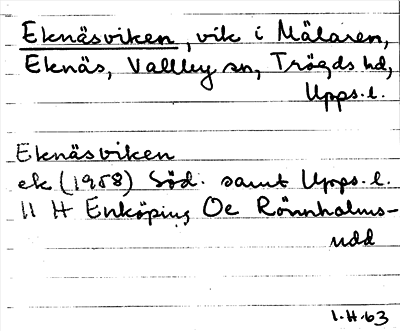 Eknäsviken, vik i Mälaren,
Eknäs, Vallby sn, Trögds hd,
Upps. l.
Eknäsviken
ek (1958) Söd. samt Upps. l.
11 H Enköping Oe Rönnholms-
udd
1.H.63